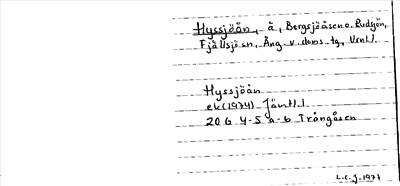 Hyssjöån, å, Bergsjöåsen o. Rudsjön,
Fjällsjö sn, Ång. v. doms. tg, Vrnl.l.
Hyssjöån
ek (1974) Jämtl. l.
20 G 4-5 a-b Trångåsen
L.C.J. 1977